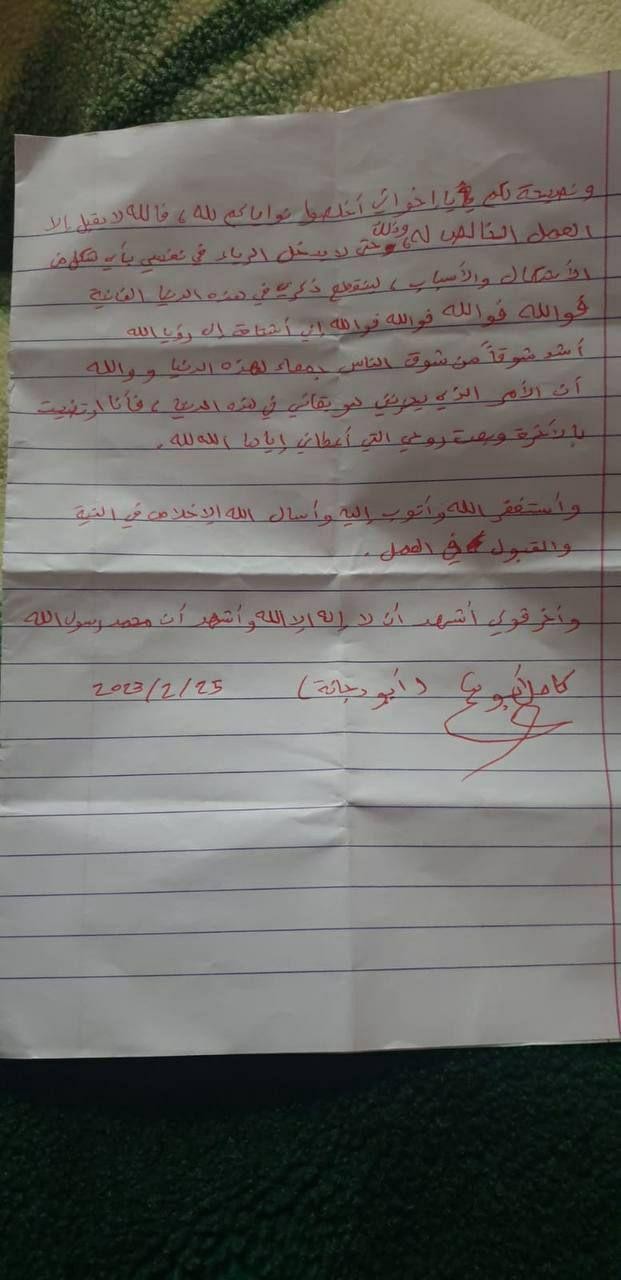 ونصيحة لكم يا اخواني أخلصوا نواياكم لله، فالله لا يقبل إلا
العمل الخالص له، وذلك حتى لا يدخل الرياء في نفسي بأي شكل من
الأشكال والأسباب، لينقطع ذكري في هذه الدنيا الفانية
فوالله فوالله فوالله فوالله إني أشتاق إلى رؤيا الله
أشد شوقاً من شوق الناس جمعاء لهذه الدنيا ووالله
أن الأمر الذي يحزنني هو بقائي في هذه الدنيا، فأنا ارتضيت
بالأخرة وبعت روحي التي أعطاني إياها الله لله.
وأستغفر الله وأتوب إليه وأسأل الله الإخلاص في النية
والقبول في العمل.
وأخر قولي أشهد أن لا إله إلا الله وأشهد أن محمد رسول الله
كامل (أبو دجانة) 2023/2/25